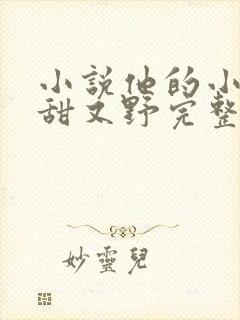 小說他的小
甜又野完整
妙靈兒